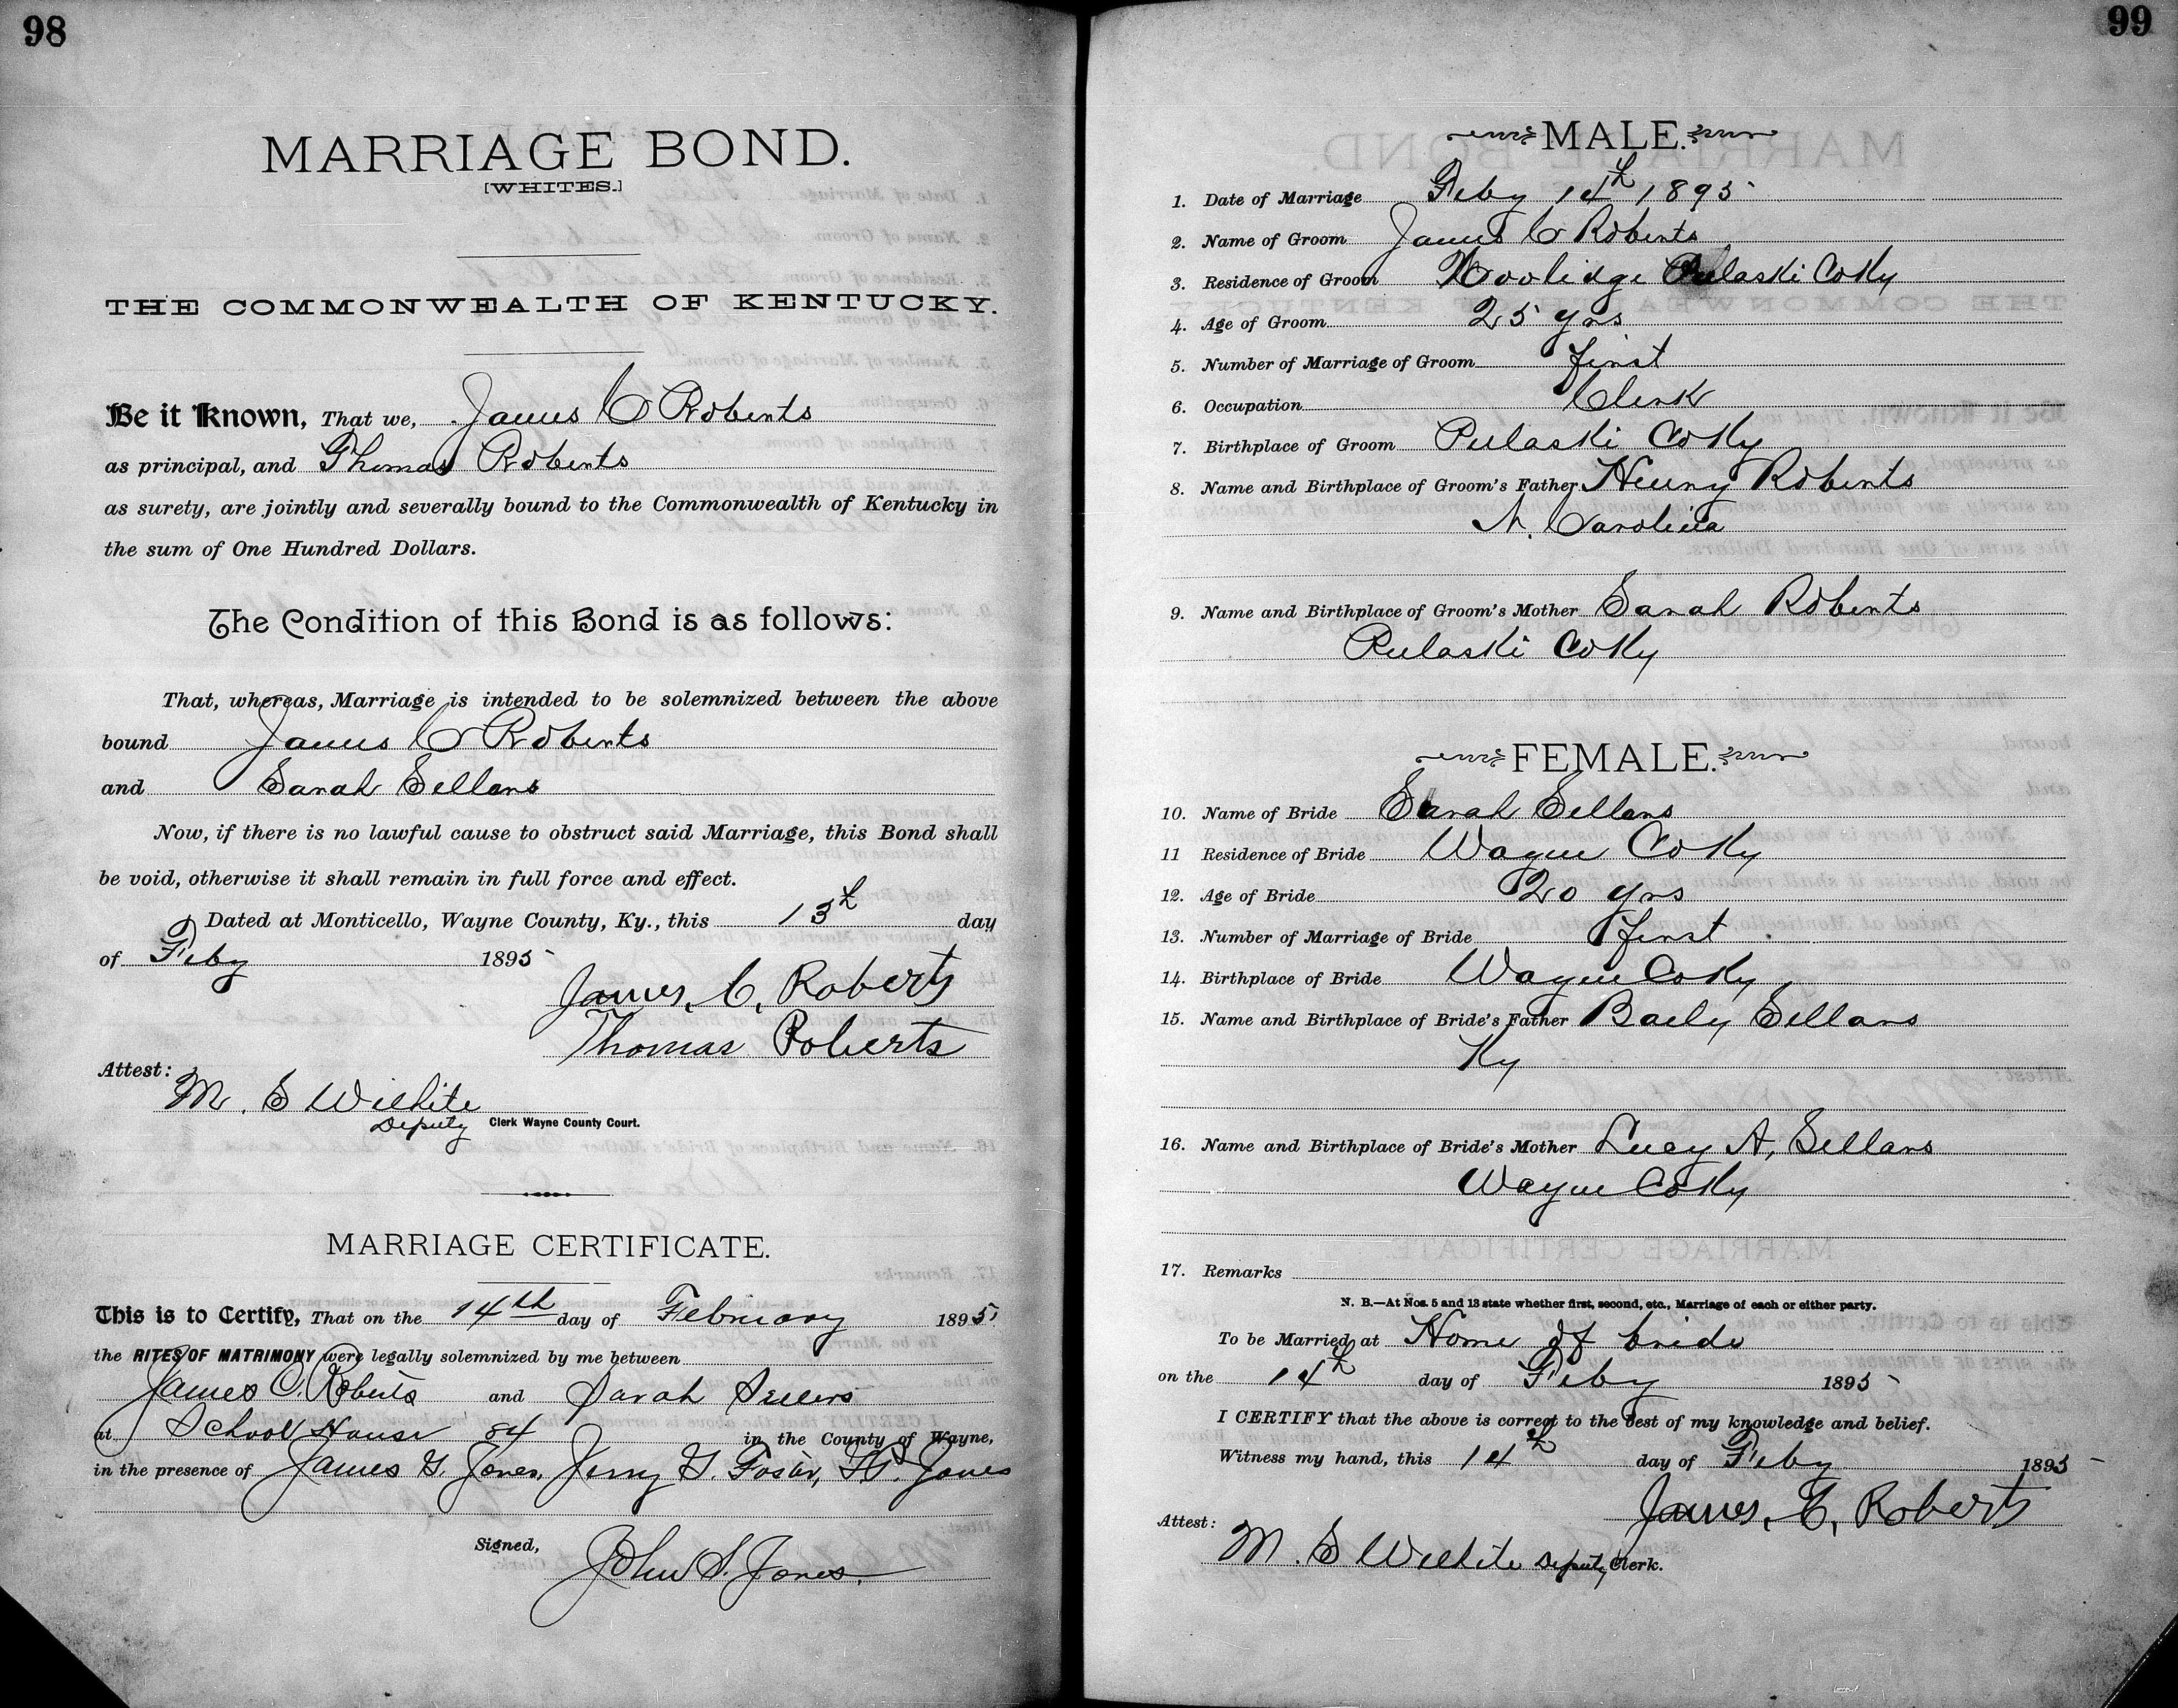 98
MARRIAGE BOND.
[WHITES.]
THE COMMONWEALTH OF KENTUCKY.
Be it Known, That we, James C Roberts
as principal, and Thomas Roberts
as surety, are jointly and severally bound to the Commonwealth of Kentucky in
the sum of One Hundred Dollars.
The Condition of this Bond is as follows:
That, whereas, Marriage is intended to be solemnized between the above
bound James C Roberts
and Sarah Sellars
Now, if there is no lawful cause to obstruct said Marriage, this Bond shall
be void, otherwise it shall remain in full force and effect.
Dated at Monticello, Wayne County, Ky., this 13th day
of Feby 1895
James, C, Roberts
Thomas Roberts
Attest:
M. S Wilhite
Deputy Clerk Wayne County Court.
MARRIAGE CERTIFICATE.
This is to Certify, That on the 14th day of February 1895
the RITES OF MATRIMONY were legally solemnized by me between
James C. Roberts and Sarah
at School House 84 in the County of Wayne,
in the presence of James G. Jones, Jerry G. Foster, Jones
Signed,
John S. Jones.
99
MALE.
1. Date of Marriage Feby 14th 1895
2. Name of Groom James C Roberts
3. Residence of Groom Pulaski Co Ky
4. Age of Groom 25 yrs
5. Number of Marriage of Groom first
6. Occupation Clerk
7. Birthplace of Groom Pulaski Co Ky
8. Name and Birthplace of Groom's Father Henry Roberts
N. Carolina
9. Name and Birthplace of Groom's Mother Sarah Roberts
Pulaski Co Ky
FEMALE.
10. Name of Bride Sarah Sellars
11 Residence of Bride Wayne Co Ky
12. Age of Bride 20 yrs
13. Number of Marriage of Bride first
14. Birthplace of Bride Wayne Co Ky
15. Name and Birthplace of Bride's Father Baily Sellars
Ky
16. Name and Birthplace of Bride's Mother Lucy A, Sellars
Wayne Co Ky
17. Remarks
N. B.—At Nos. 5 and 13 state whether first, second, etc., Marriage of each or either party.
To be Married at Home of bride
on the 14th day of Feby 1895
I CERTIFY that the above is correct to the best of my knowledge and belief.
Witness my hand, this 14th day of Feby 1895
James, C, Roberts
Attest:
M. S Wilhite Deputy Clerk.